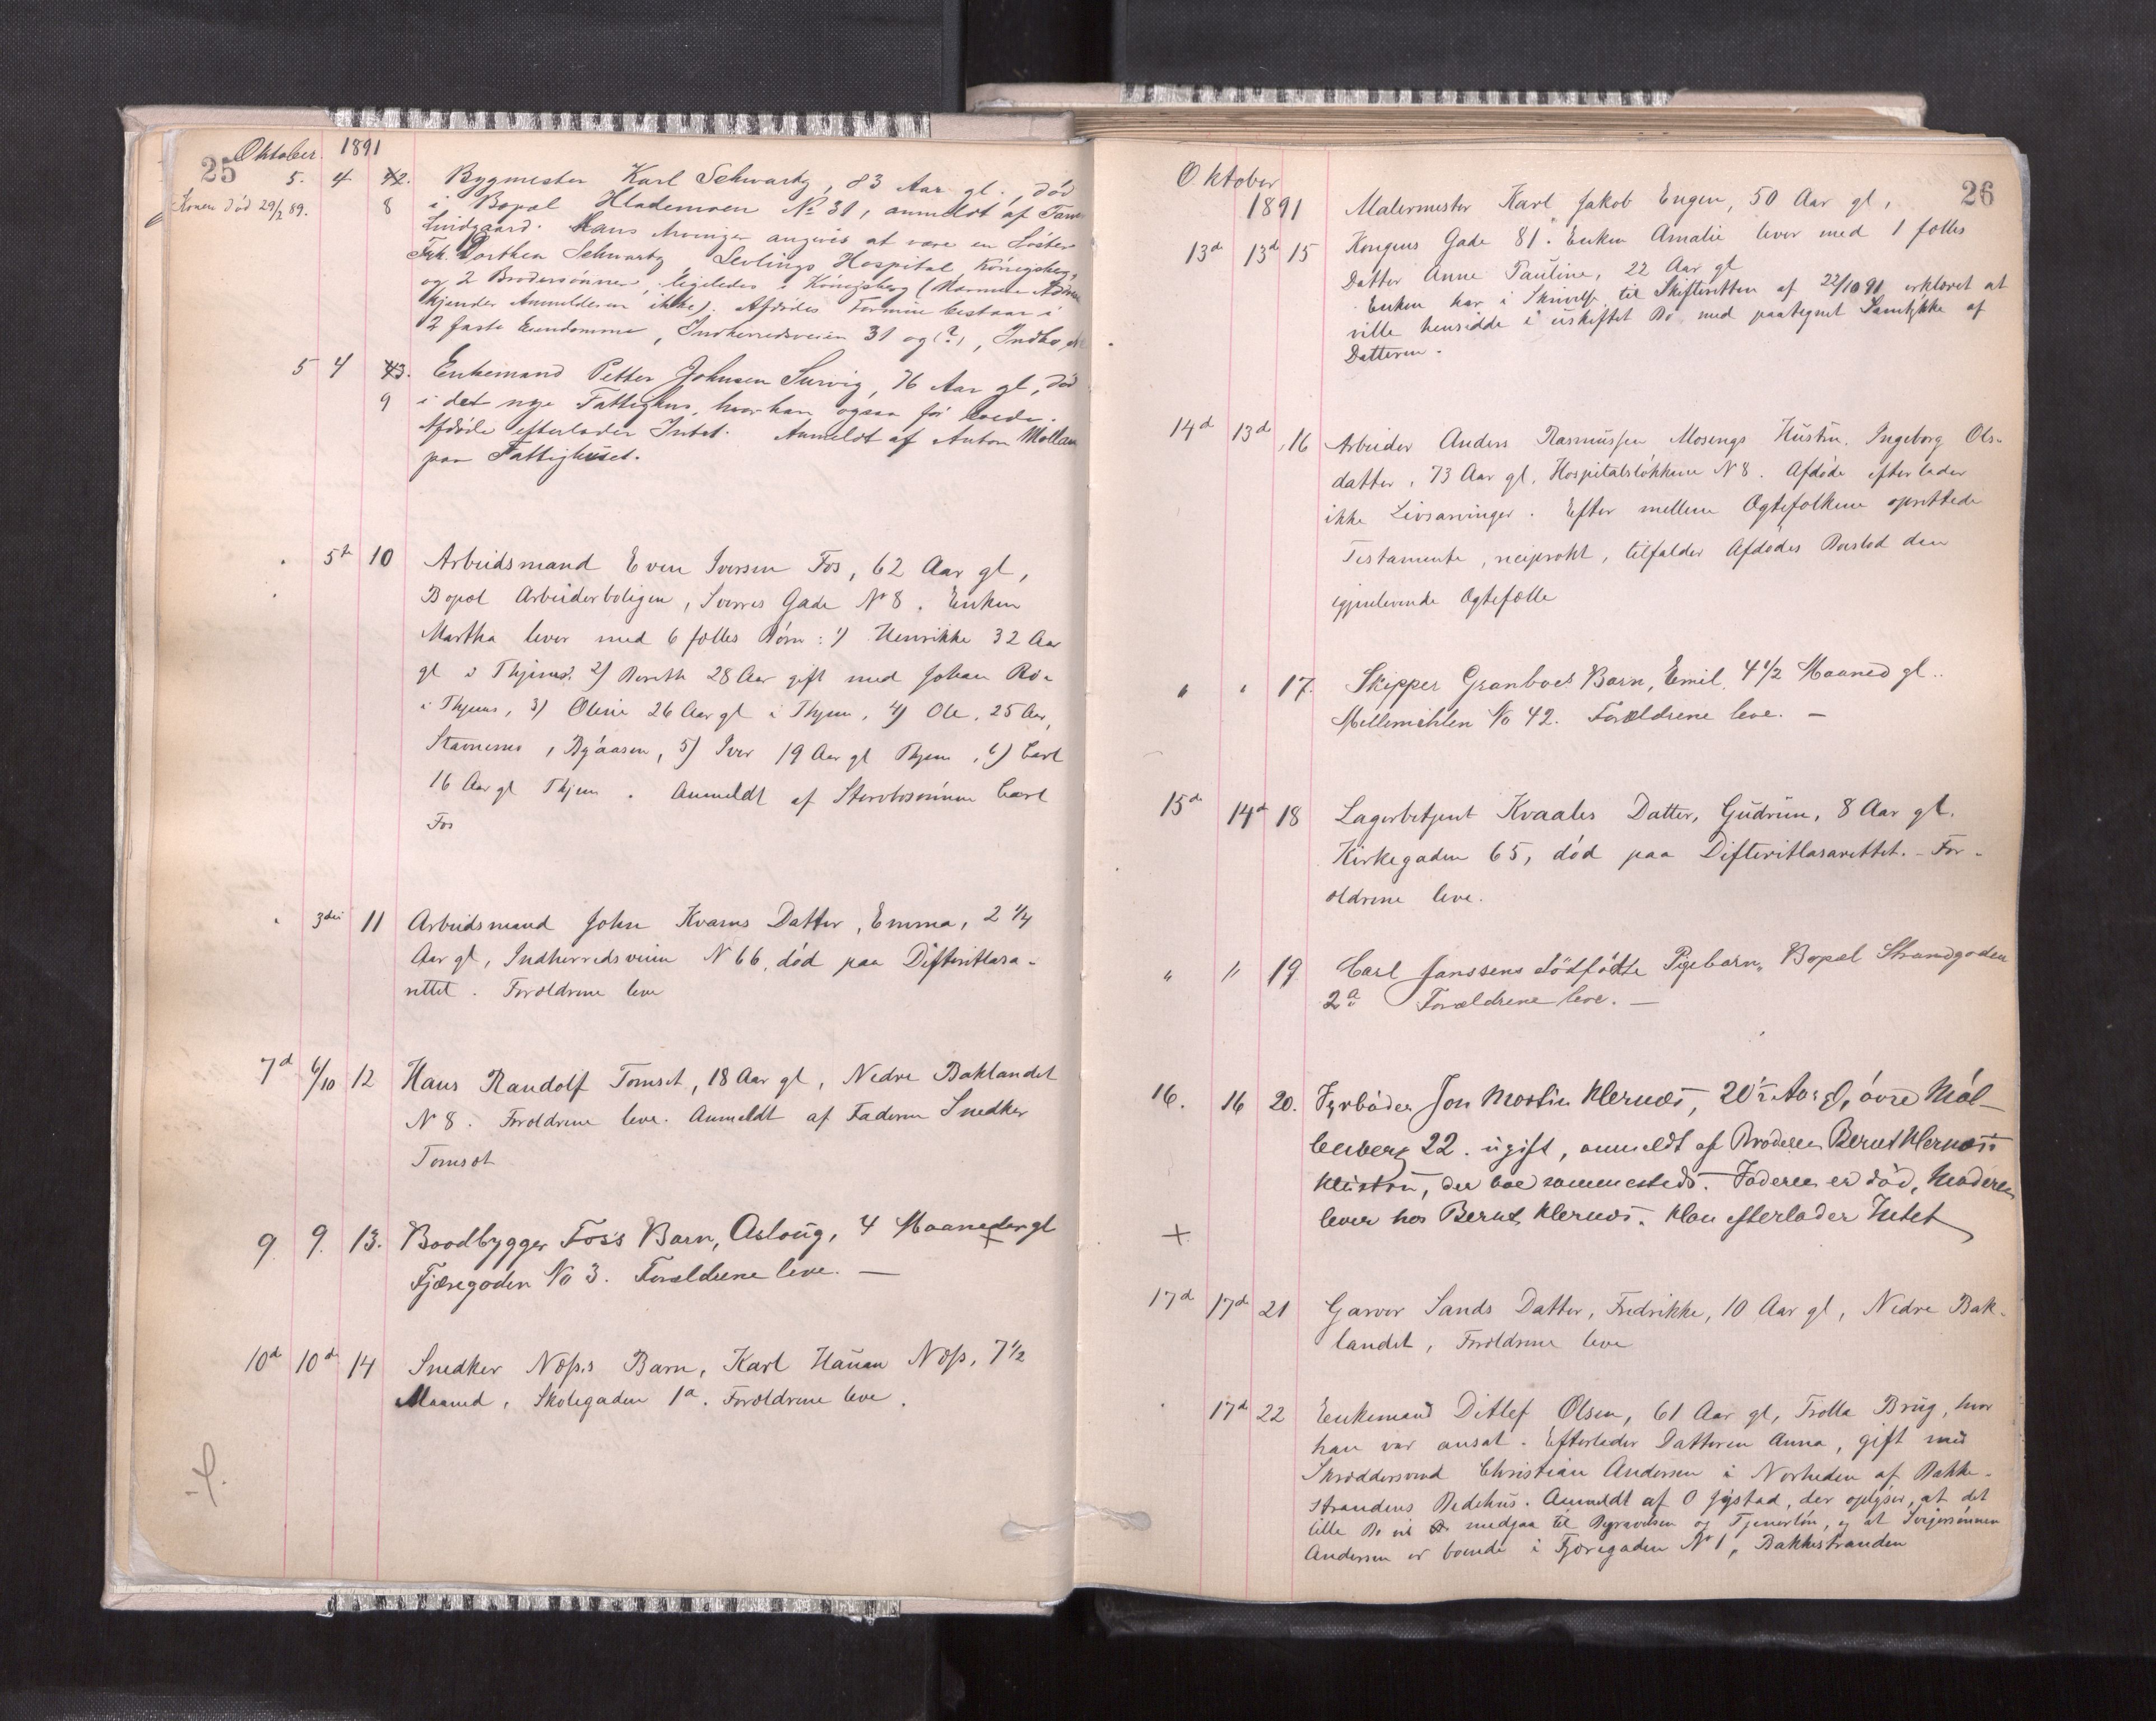 25 Oktober. 1891
5. 4 42. Bygmester Karl Schwartz, 83 Aar gl., död
Konen död 29/2 89. 8 i Bopæl Hlademoen No 31, anmeldt af
Lindgaard. Hans Arvinger angives at være en Söster
Frk. Dorthea Schwartz, Hospital, Königsberg,
og 2 Brodersönner, ligeledes i Königsberg (Navnene
kjender Anmelderen ikke). Afdödes Formue bestaar i
2 faste Eiendomme, Indherredsveien 31 og (?),
5 4 43. Enkemand Petter Johnsen Survig, 76 Aar gl, död
9 i det nye Fattighus, hvor han ogsaa för boede.
Afdöde efterlader Intet. Anmeldt af Anton Mollan
paa Fattighuset.
5t 10 Arbeidsmand Even Iversen Fos, 62 Aar gl,
Bopæl Arbeiderboligen, Sverres Gade No 8. Enken
Martha lever med 6 fælles Börn: 1) Henrikke 32 Aar
gl i Thjenes. 2) Bereth 28 Aar gift med Johan
i Thjem, 3) Oline 26 Aar gl i Thjem, 4) Ole, 25 Aar,
Stavnene, Byaasen, 5) Iver 19 Aar gl Thjem, 6) Carl
16 Aar gl Thjem. Anmeldt af Stervbosönnen Carl
Fos
3die 11 Arbeidsmand John Kvams Datter, Emma, 2 1/4
Aar gl, Indherredsveien No 66, död paa Difteritlasa-
rettet. Forældrene leve
7d 6/10 12 Hans Randolf Tomset, 18 Aar gl, Nedre Baklandet
No 8. Forældrene leve. Anmeldt af Faderen Snedker
Tomset
9 9. 13. Baadbygger Foss's Barn, Aslaug, 4 Maaneder gl
Fjæregaden No 3. Forældrene leve. —
10d 10d 14 Snedker Næss's Barn, Karl Hauan Næss, 7 1/2
Maaned, Skolegaden 1a. Forældrene leve.
Oktober 26
1891 Malermester Karl Jakob Engen, 50 Aar gl,
13d 13d 15 Kongens Gade 81. Enken Amalie lever med 1 fælles
Datter Anne Pauline, 22 Aar gl
Enken har i Skrivelse til Skifteretten af 22/10 91 erklæret at
ville hensidde i uskiftet Bo med paategnet Samtykke af
Datteren.
14d 13d 16 Arbeider Anders Rasmussen Mosengs Hustru Ingeborg Ols-
datter, 73 Aar gl, Hospitalslökkene No 8. Afdöde efterlader
ikke Livsarvinger. Efter mellem Ægtefolkene oprettede
Testamente, reciprokt, tilfalder Afdödes Boslod den
igjenlevende Ægtefælle
" " 17. Skipper Granboes Barn, Emil, 4 1/2 Maaned gl.
Mellemihlen No 42. Forældrene leve. —
15d 14d 18 Lagerbetjent Kvaales Datter, Gudrun, 8 Aar gl.
Kirkegaden 65, död paa Difteritlasarettet. - For-
ældrene leve.
" " 19 Carl Janssens dödfödte Pigebarn, Bopæl Strandgaden
2a Forældrene leve. —
16. 16 20. Fyrböder Jon Martin Hernæs, 20 1/2 Aar gl, övre Möl-
lenberg 22. ugift, anmeldt af Broderen Bernt Hernæs's
Hustru, der boe sammesteds. Faderen er död, Moderen
lever hos Bernt Hernæs. Han efterlader Intet
17d 17d 21 Garver Sands Datter, Fredrikke, 10 Aar gl, Nedre Bak-
landet, Forældrene leve
17d 22 Enkemand Ditlef Olsen, 61 Aar gl, Trolla Brug, hvor
han var ansat. Efterlader Datteren Anna, gift med
Skræddersvend Christian Andersen i Nærheden af Bakke-
strandens Bedehus. Anmeldt af O Gystad, der oplyser, at det
lille Bo vil medgaa til Begravelsen og Tjenerlön, og at Svigersönnen
Andersen er boende i Fjæregaden No 1, Bakkestranden